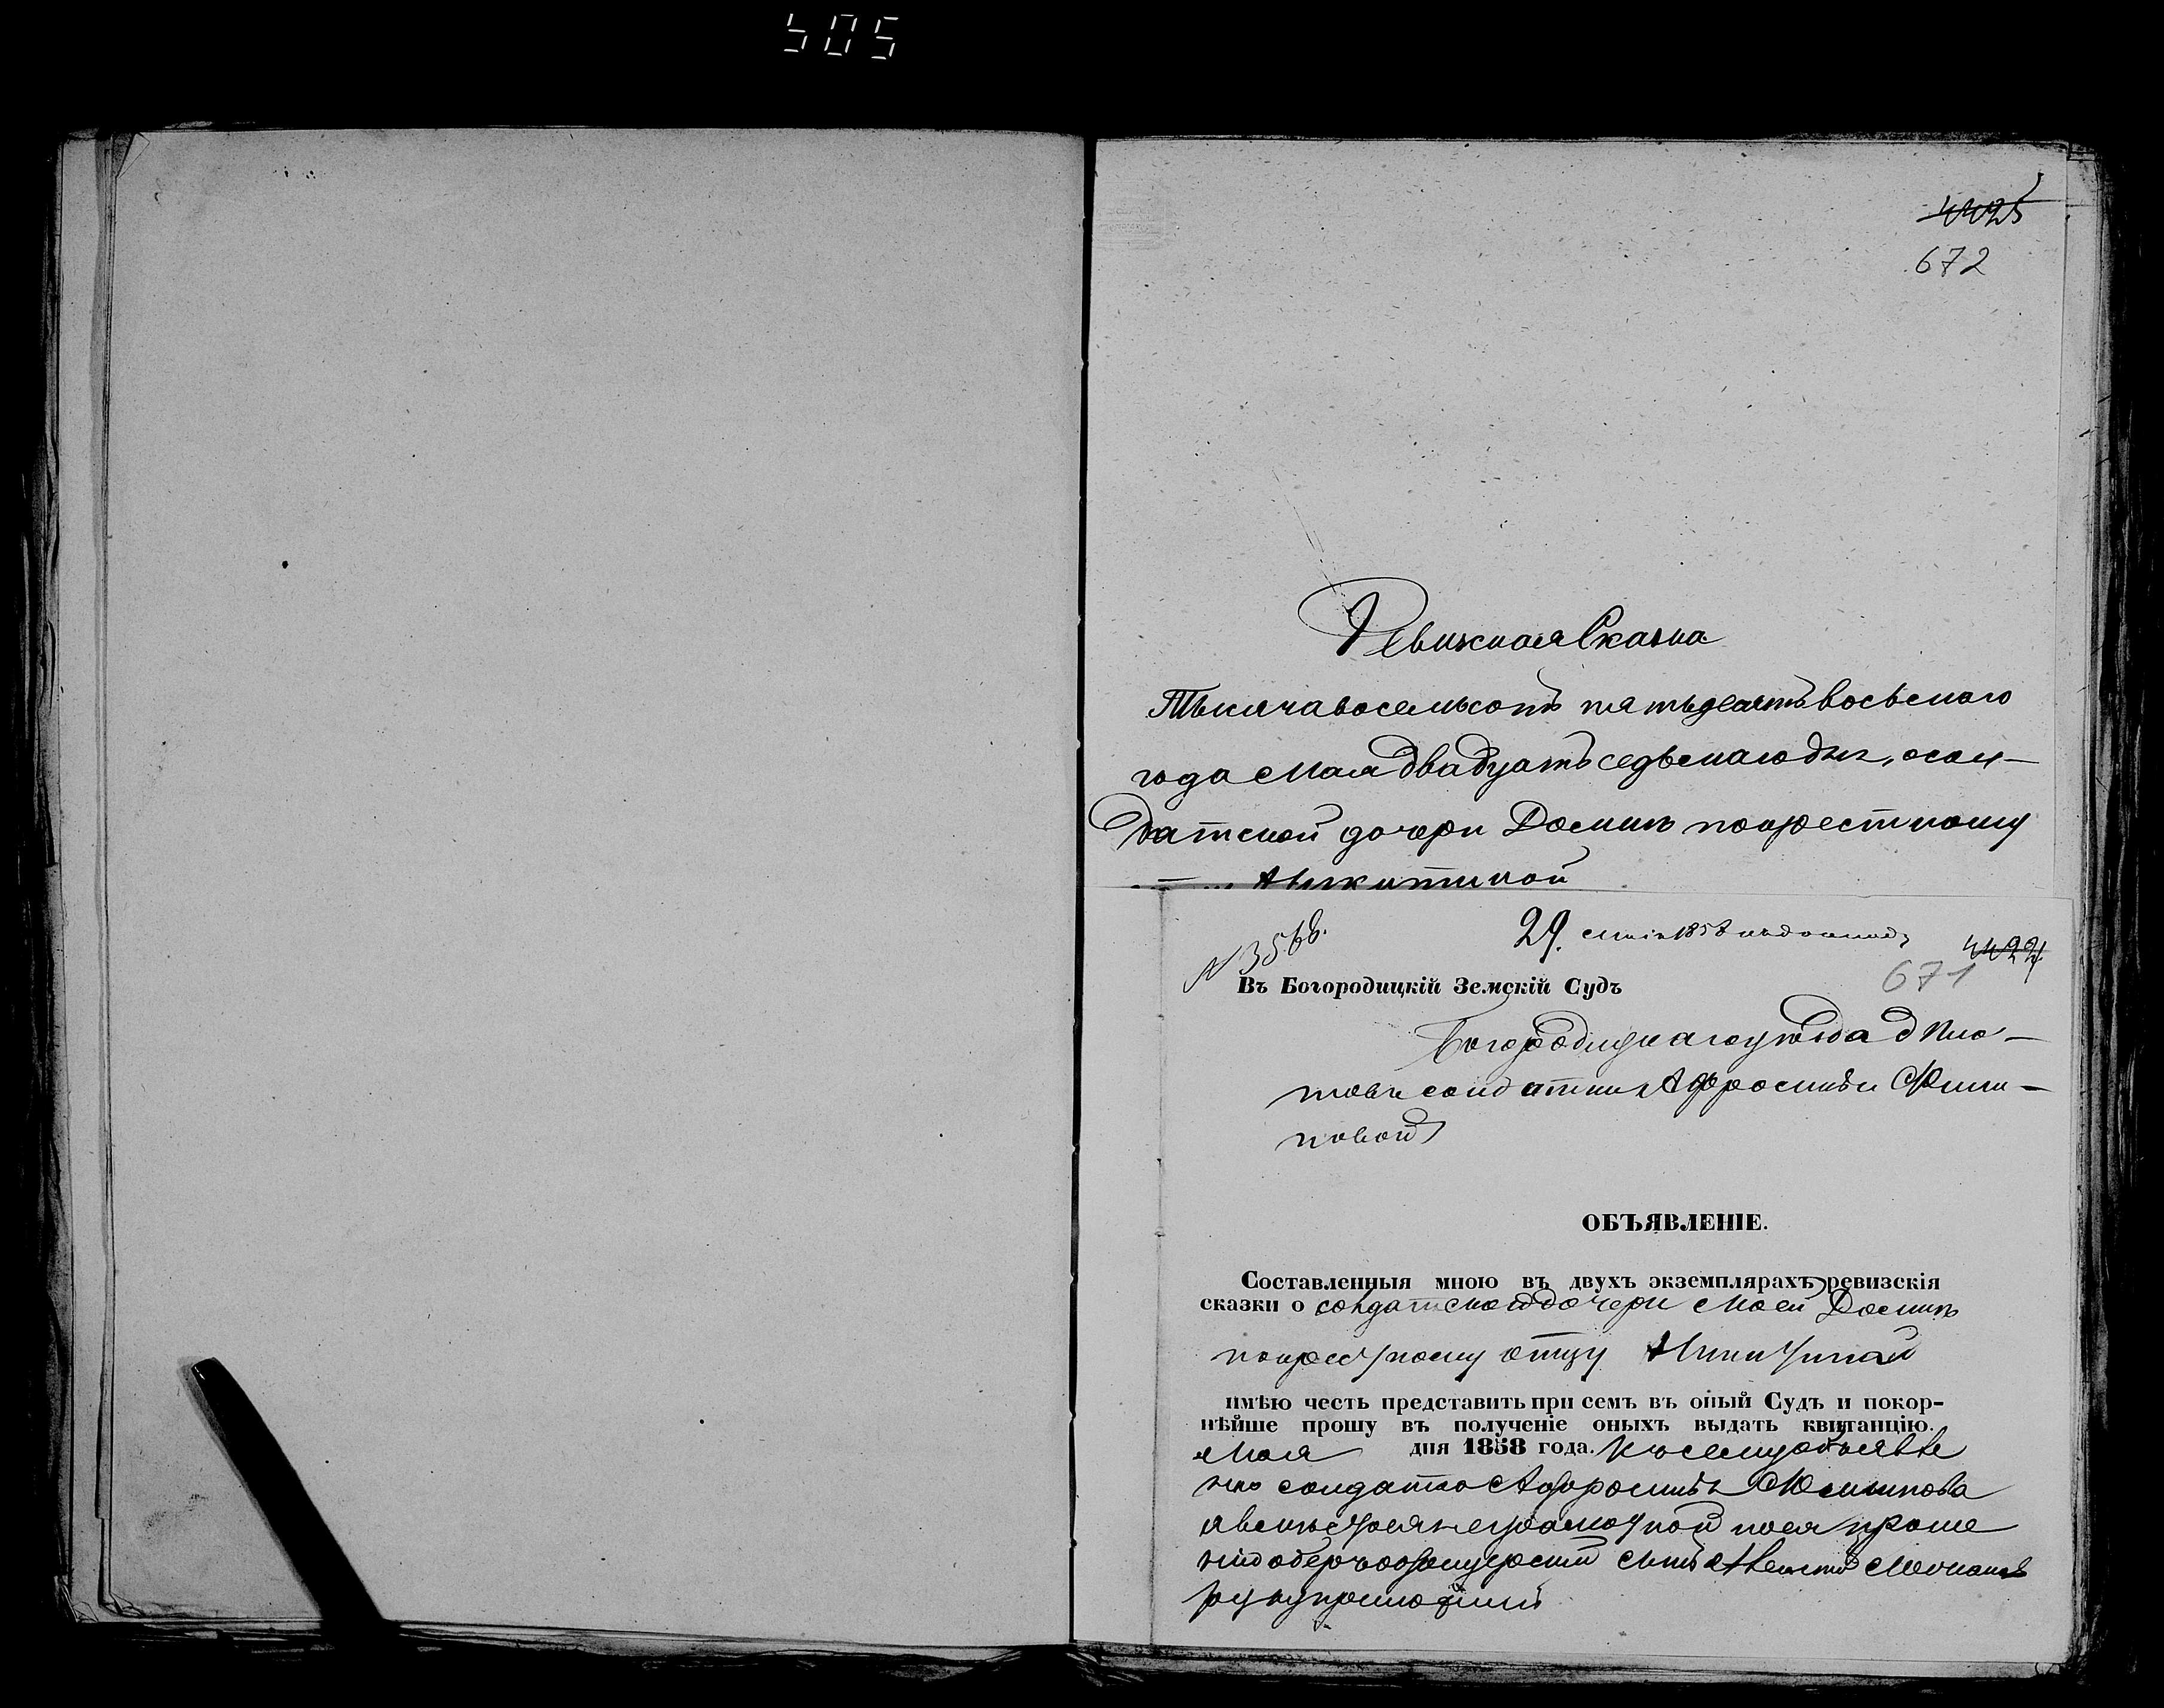 505
4425
672
Ревижская Сказка
Тысяча восемьсотъ пятьдесятъ восьмого
года Мая двадцать седьмаго дня, о сол-
датской дочери Домнѣ по крестному
Никитиной
№ 3566.
29. 1858
4424
671
Въ Богородицкій Земскій Судъ
Богородицкаго уѣзда д
солдатки Афросиньи Фили-
повой
ОБЪЯВЛЕНІЕ.
Составленныя мною въ двухъ экземплярахъ ревизскія
сказки о солдатской дочери моей Домнѣ
по крестному отцу Никитиной
имѣю честь представить при семъ въ оный Судъ и покор-
нѣйше прошу въ полученіе оныхъ выдать квитанцію.
Мая дня 1858 года. Къ сему объявле
нію солдатка Афросинья Филипова
а вмѣсто неграмотной по ея проше
нію оберъ офицерскій сынъ
руку приложилъ